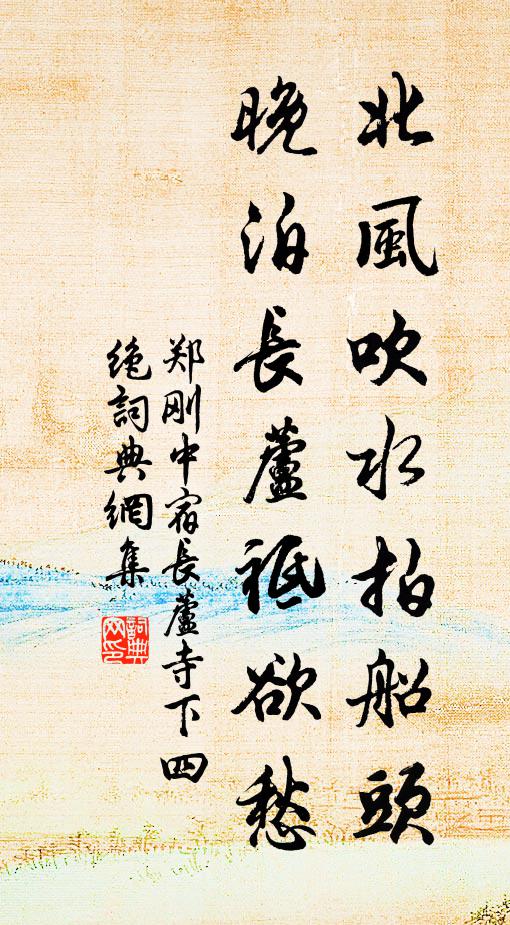 北風吹水拍船頭
晚泊長蘆祗欲愁
郑刚中宿長蘆寺下四
絶詞典網集
詞典
网印